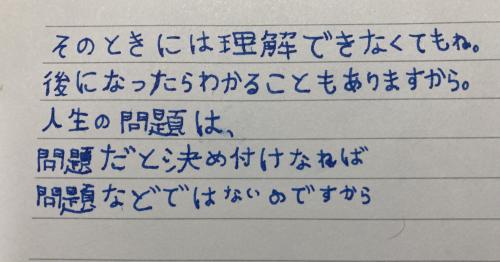 そのときには理解できなくてもね。
後になったらわかることもありますから。
人生の問題は、
問題だと決め付けなれば
問題などではないのですから